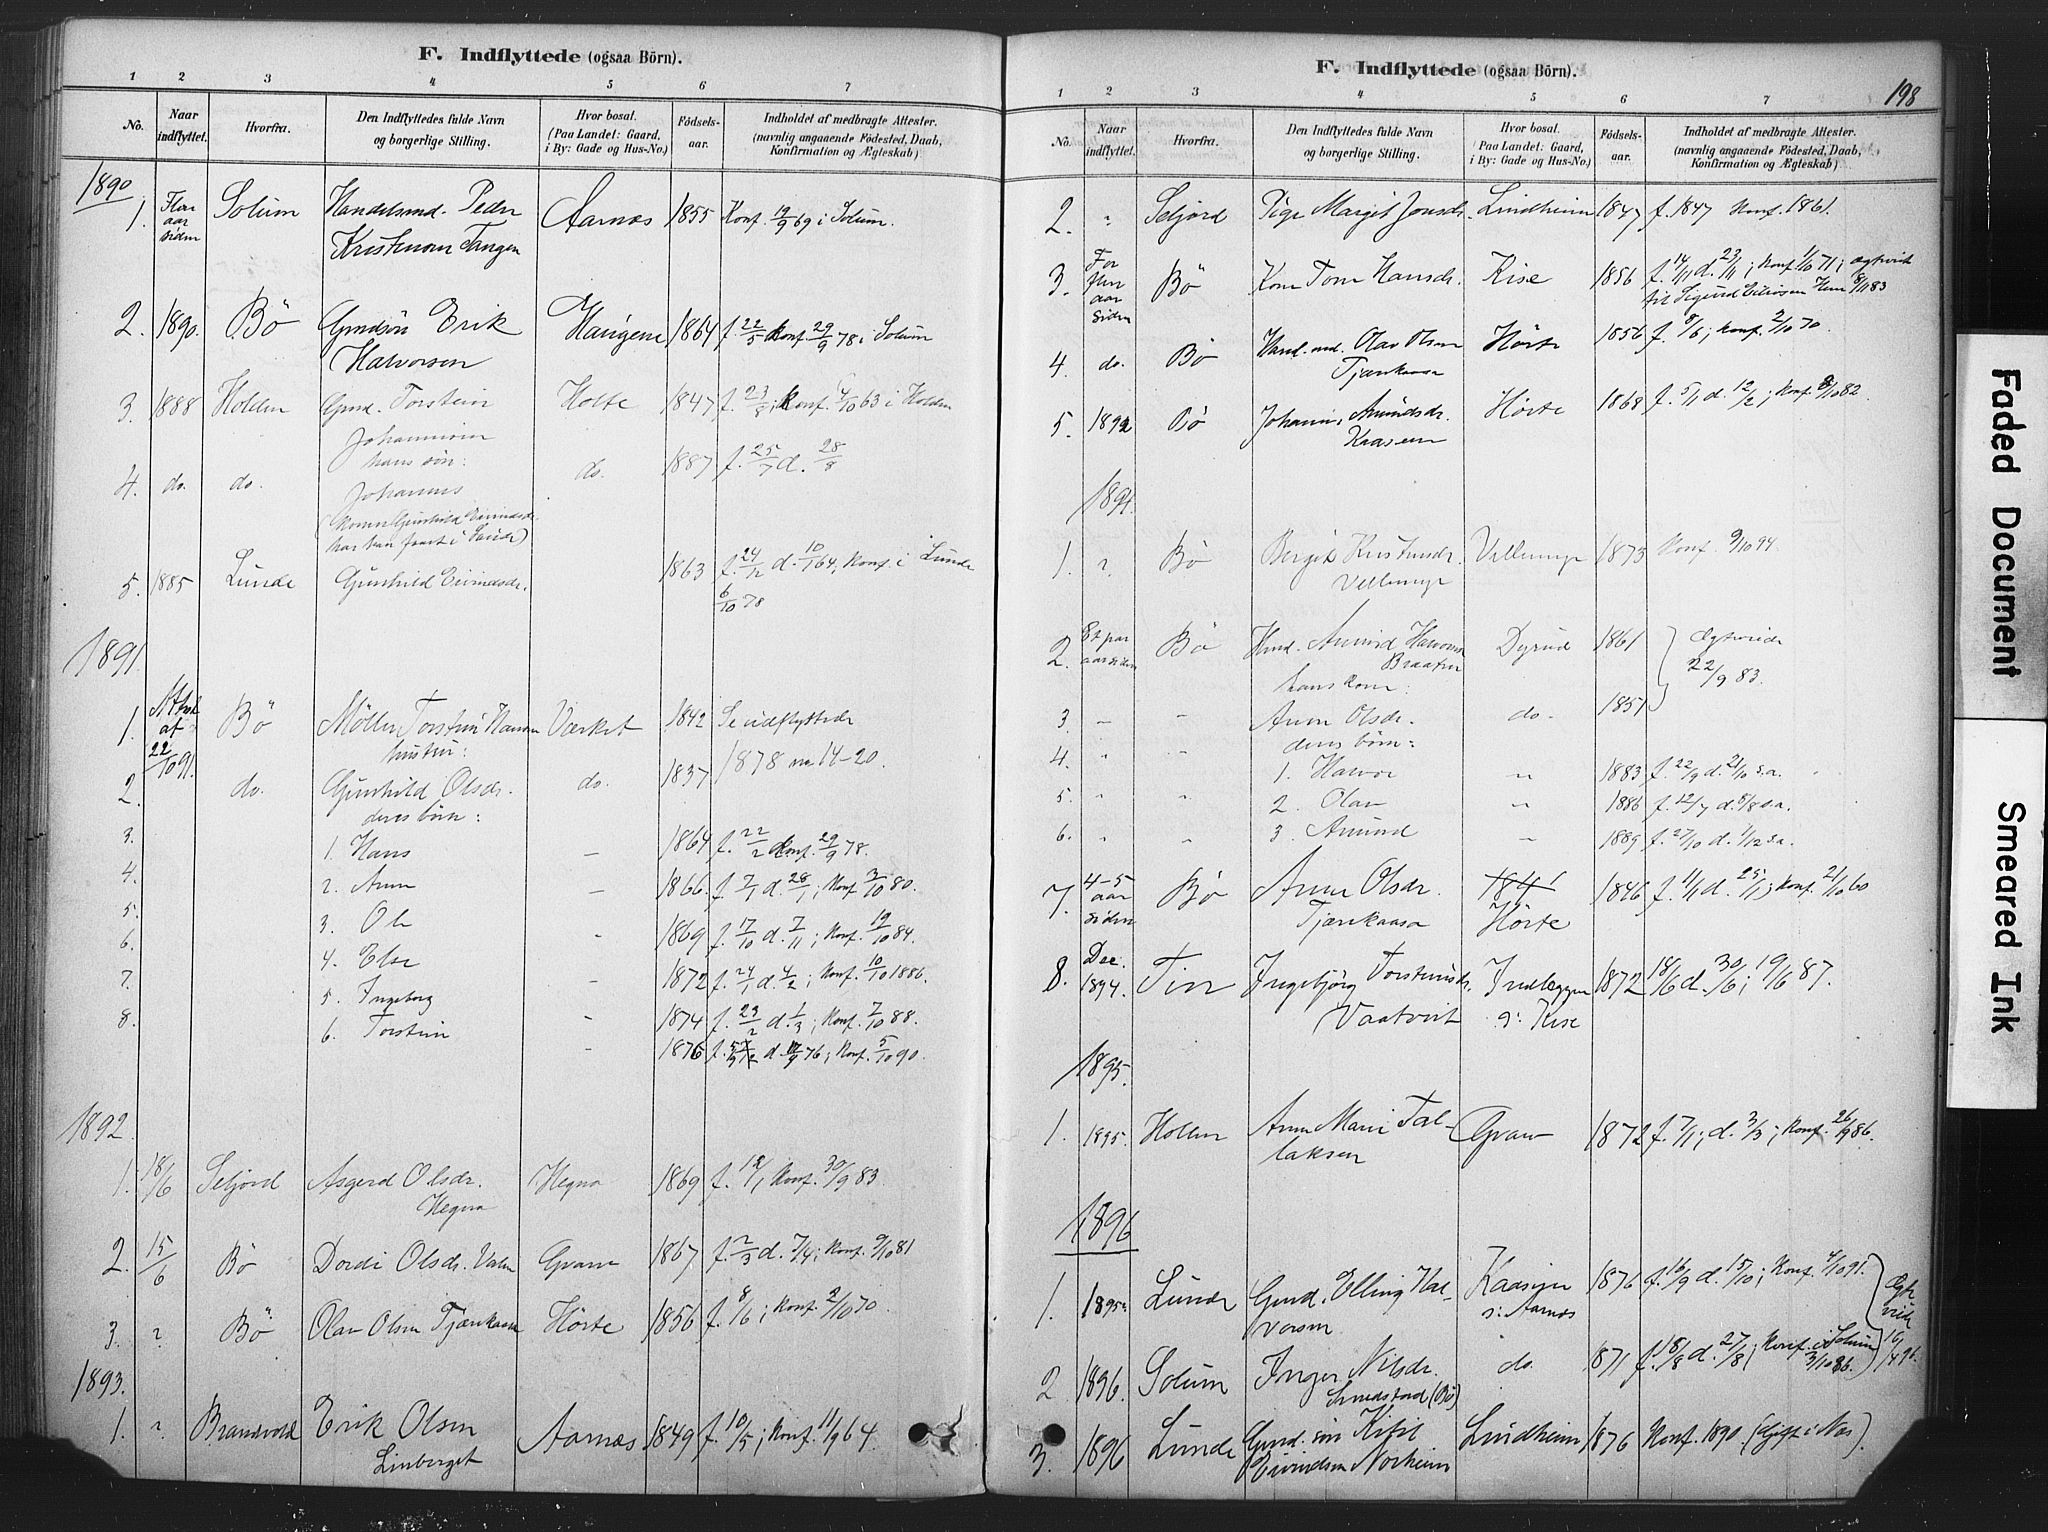 F. Indflyttede (ogsaa Börn).
1 2 3 4 5 6 7
No. Naar indflyttet. Hvorfra. Den Indflyttedes fulde Navn og borgerlige Stilling. Hvor bosat. (Paa Landet: Gaard, i By: Gade og Hus-No.) Födselsaar. Indholdet af medbragte Attester. (navnlig angaaende Födested, Daab, Konfirmation og Ægteskab)
1890
1. Fler aar siden Solum Handelsmd. Peder Aarnæs 1855 Konf. 12/9 69 i Solum.
Tangen
2. 1890. Bö Gmdsön Erik Haugene 1864 f. 22/5 Konf. 29/9 78 i Solum
Halvorsen
3. 1888 Holden Gmd. Torstein Holte 1847 f. 23/8; Konf. 4/10 63 i Holden
hans sön:
4. do. do. Johannes do. 1887 f. 25/7 d. 28/8
(Konen Gunhild Eivindsdr.
5. 1885 Lunde Gunhild Eivindsdr. 1863 f. 24/12 d. 10/1 64, Konf. i Lunde
6/10 78
1891.
1. Attest af 22/10 91. Bö Möller Torstein Hansen Værket 1842 Se udflyttede
hustru: 1878 no 14-20.
2. do. Gunhild Olsdr. do. 1837
deres börn:
3. 1. Hans – 1864 f. 22/2 Konf. 29/9 78.
4. 2. Anne – 1866 f. 7/1 d. 28/1; Konf. 3/10 80.
5. 3. Ole - 1869 f. 17/10 d. 7/11; Konf. 19/10 84.
6. 4. Else - 1872 f. 24/1 d. 4/2; Konf. 10/10 1886.
7. 5. Ingeborg - 1874 f. 23/2 d. 1/3; Konf. 7/10 88.
8. 6. Torstein - 1876 Konf. 5/10 90.
1892.
1. 18/6 Seljord Asgerd Olsdr. Hegna 1869 f. 12/1 Konf. 30/9 83
Hegna
2. 15/6 Bö Dordi Olsdr. Valen Grave 1867 f. 2/3 d. 7/4; Konf. 9/10 81
3. ? Bö Olav Olsen Tjænkaasa Hörte 1856 f. 8/6; Konf. 2/10 70.
1893.
1. ? Brandvold Erik Olsen Aarnæs 1849 f. 10/5; Konf. 11/9 64.
Linberget
F. Indflyttede (ogsaa Börn).
198
1 2 3 4 5 6 7
No. Naar indflyttet. Hvorfra. Den Indflyttedes fulde Navn og borgerlige Stilling. Hvor bosat. (Paa Landet: Gaard, i By: Gade og Hus-No.) Födselsaar. Indholdet af medbragte Attester. (navnlig angaaende Födested, Daab, Konfirmation og Ægteskab)
2. " Seljord Pige Margit Jonsdr. Lindheim 1847 f. 1847 Konf. 1861.
3. For fem aar siden Bö Kone Tone Hansdr. Kise 1856 f. 14/11 d. 23/11; Konf. 1/10 71; ægtevied
til Sigurd 8/11 83
4. do. Bö Olav Olsen Hörte 1856 f. 8/6; Konf. 2/10 70.
Tjænkaasa
5. 1892 Bö Johanne Amundsdr. Hörte 1868 f. 5/1 d. 12/2; Konf. 8/10 82.
Kaasene
1894.
1. ? Bö Bergit Kristensdr. Vellemyr 1873 Konf. 9/10 94.
Vellemyr
2. Et par aar siden Bö Hmd. Amund Halvorsen Dyrud 1861 Ægteviede
Braaten 22/9 83.
hans kone:
3. – " Anne Olsdr. do. 1857
deres börn:
4. " " 1. Halvor " 1883 f. 22/9 d. 21/10 s.a.
5. " " 2. Olav " 1886 f. 12/7 d. 8/8 s.a.
6. " " 3. Amund – 1889 f. 27/10 d. 1/12 s.a.
7. 4-5 aar siden Bö Anne Olsdr. 1846 1846 f. 11/1 d. 25/1; Konf. 21/10 60
Tjænkaasa Hörte
8. Dec. 1894. Tin Ingebjörg Torsteinsdr. Indlæggen 1872 18/6 d. 30/6; 19/6 87.
Vaatveit s: Kise
1895.
1. 1895. Hollen Anne Marie Tal- Grave 1872 f. 7/1; d. 3/3; Konf. 26/9 86.
laksen
1896
1. 1895. Lunde Gmd. Elling Hal- Kaasene 1876 f. 16/9 d. 15/10; Konf. 4/10 91.
vorsen s: Aarnæs
2. 1896. Solum Inger Nilsdr. do. 1871 f. 18/8 d. 27/8; Konf. i Solum 3/10 86.
(Bö)
3. 1896 Lunde Gmd. sön Kittil Lindheim 1876 Konf. 1890. (Gift i Næs).
Eivindsen Norheim
Faded Document
Smeared Ink